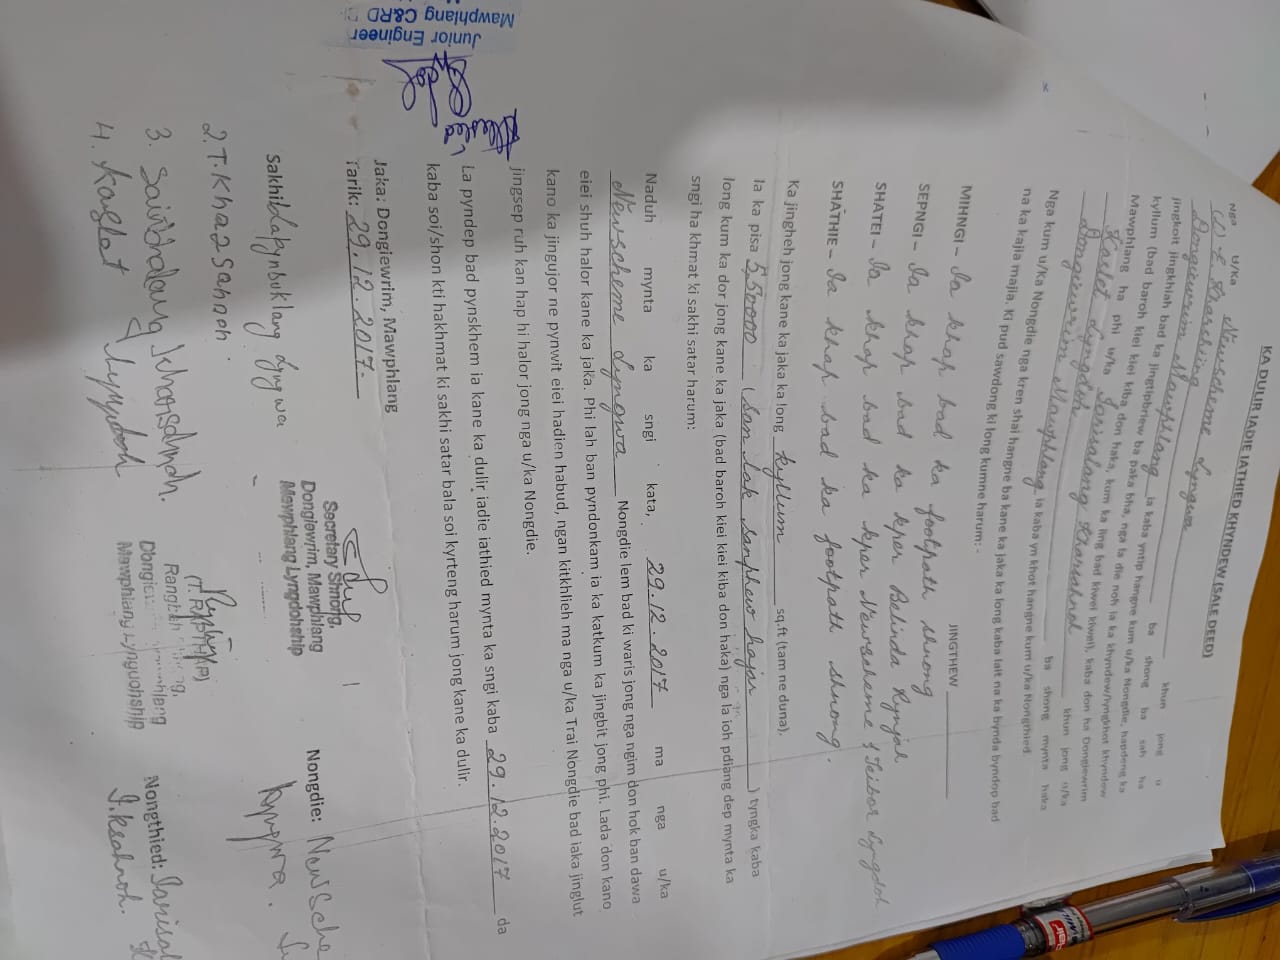 KA DULIR IADIE IATHIED KHYNDEW (SALE DEED)
Nga u/Ka Newscheme Lyngwa khun jong u
(L) E. Kharshiing ba shong ba sah ha
Dongiewrim Mawphlang ia kaba yntip hangne kum u/ka Nongdie, hapdeng ka
jingkoit jingkhlah bad ka jingtipbriew ba paka bha, nga la die noh ia ka khyndew/lyngkhot khyndew
kyllum (bad baroh kiei kiei kiba don haka, kum ka ling bad kiwei kiwei), kaba don ha Dongiewrim
Mawphlang ha phi u/ka Iarisalang Kharsahnoh khun jong u/ka
Korlet Lyngdoh ba shong mynta haka
Dongiewrim Mawphlang ia kaba yn khot hangne kum u/ka Nongthied
Nga kum u/ka Nongdie nga kren shai hangne ba kane ka jaka ka long kaba lait na ka bynda byndop bad
na ka kajia majia. Ki pud sawdong ki long kumne harum: -
JINGTHEW
MIHNGI – Ia khap bad ka footpath shnong
SEPNGI – Ia khap bad ka kper Belinda Rynjah
SHATEI – Ia khap bad ka kper Newscheme & Teibor Lyngdoh
SHATHIE – Ia khap bad ka footpath shnong.
Ka jingheh jong kane ka jaka ka long kyllum sq.ft (tam ne duna).
Ia ka pisa 550000 (san lak sanphew hajar) tyngka kaba
long kum ka dor jong kane ka jaka (bad baroh kiei kiei kiba don haka) nga la ioh pdiang dep mynta ka
sngi ha khmat ki sakhi satar harum:
Naduh mynta ka sngi kata, 29.12.2017 ma nga u/ka
Newscheme Lyngwa Nongdie lem bad ki waris jong nga ngim don hok ban dawa
eiei shuh halor kane ka jaka. Phi lah ban pyndonkam ia ka katkum ka jingbit jong phi. Lada don kano
kano ka jingujor ne pynwit eiei hadien habud, ngan kitkhlieh ma nga u/ka Trai Nongdie bad iaka jinglut
jingsep ruh kan hap hi halor jong nga u/ka Nongdie.
La pyndep bad pynskhem ia kane ka dulir iadie iathied mynta ka sngi kaba 29.12.2017 da
kaba soi/shon kti hakhmat ki sakhi satar bala soi kyrteng harum jong kane ka dulir.
Jaka: Dongiewrim, Mawphlang
Tarik: 29.12.2017
Secretary Shnong,
Dongiewrim, Mawphlang
Mawphlang Lyngdohship
Nongdie: Newsche
Lyngwa.
Sakhi: Lapynbuklang Lyngwa
2. T. Kharsahnoh.
3. Saindalang Kharsahnoh.
4. Korlet Lyngdoh
Mawphlang Lyngdohship
Nongthied: Iarisal
Junior Engineer
Mawphlang C&RD